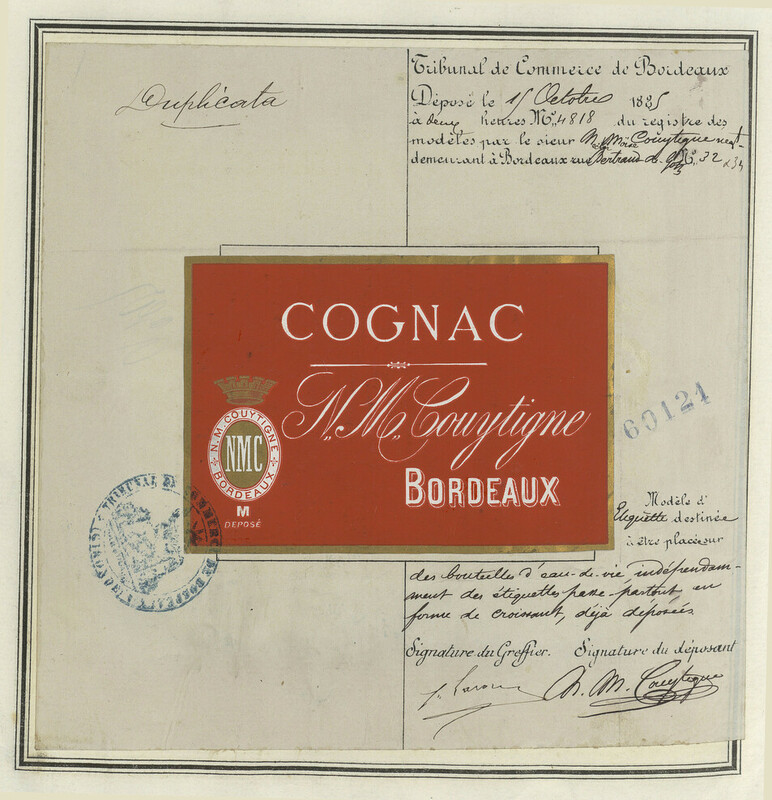 Duplicata
Tribunal de Commerce de Bordeaux
Déposé le 15 Octobre 1885
à deux heures No. 4818 du registre des
modèles par le sieur N. Moïse Couytigne
demeurant à Bordeaux rue Bertrand de No. 32 &34
COGNAC
N. M. Couytigne
BORDEAUX
N. M COUYTIGNE
NMC
BORDEAUX
M
DEPOSÉ
60124
TRIBUNAL DE COMMERCE DE BORDEAUX
Modèle d'
Etiquette destinée
à être placé sur
des bouteilles d'eau-de-vie indépendam-
ment des étiquettes passe-partout en
forme de croissant, déjà déposées
Signature du Greffier. Signature du déposant
N. M. Couytigne